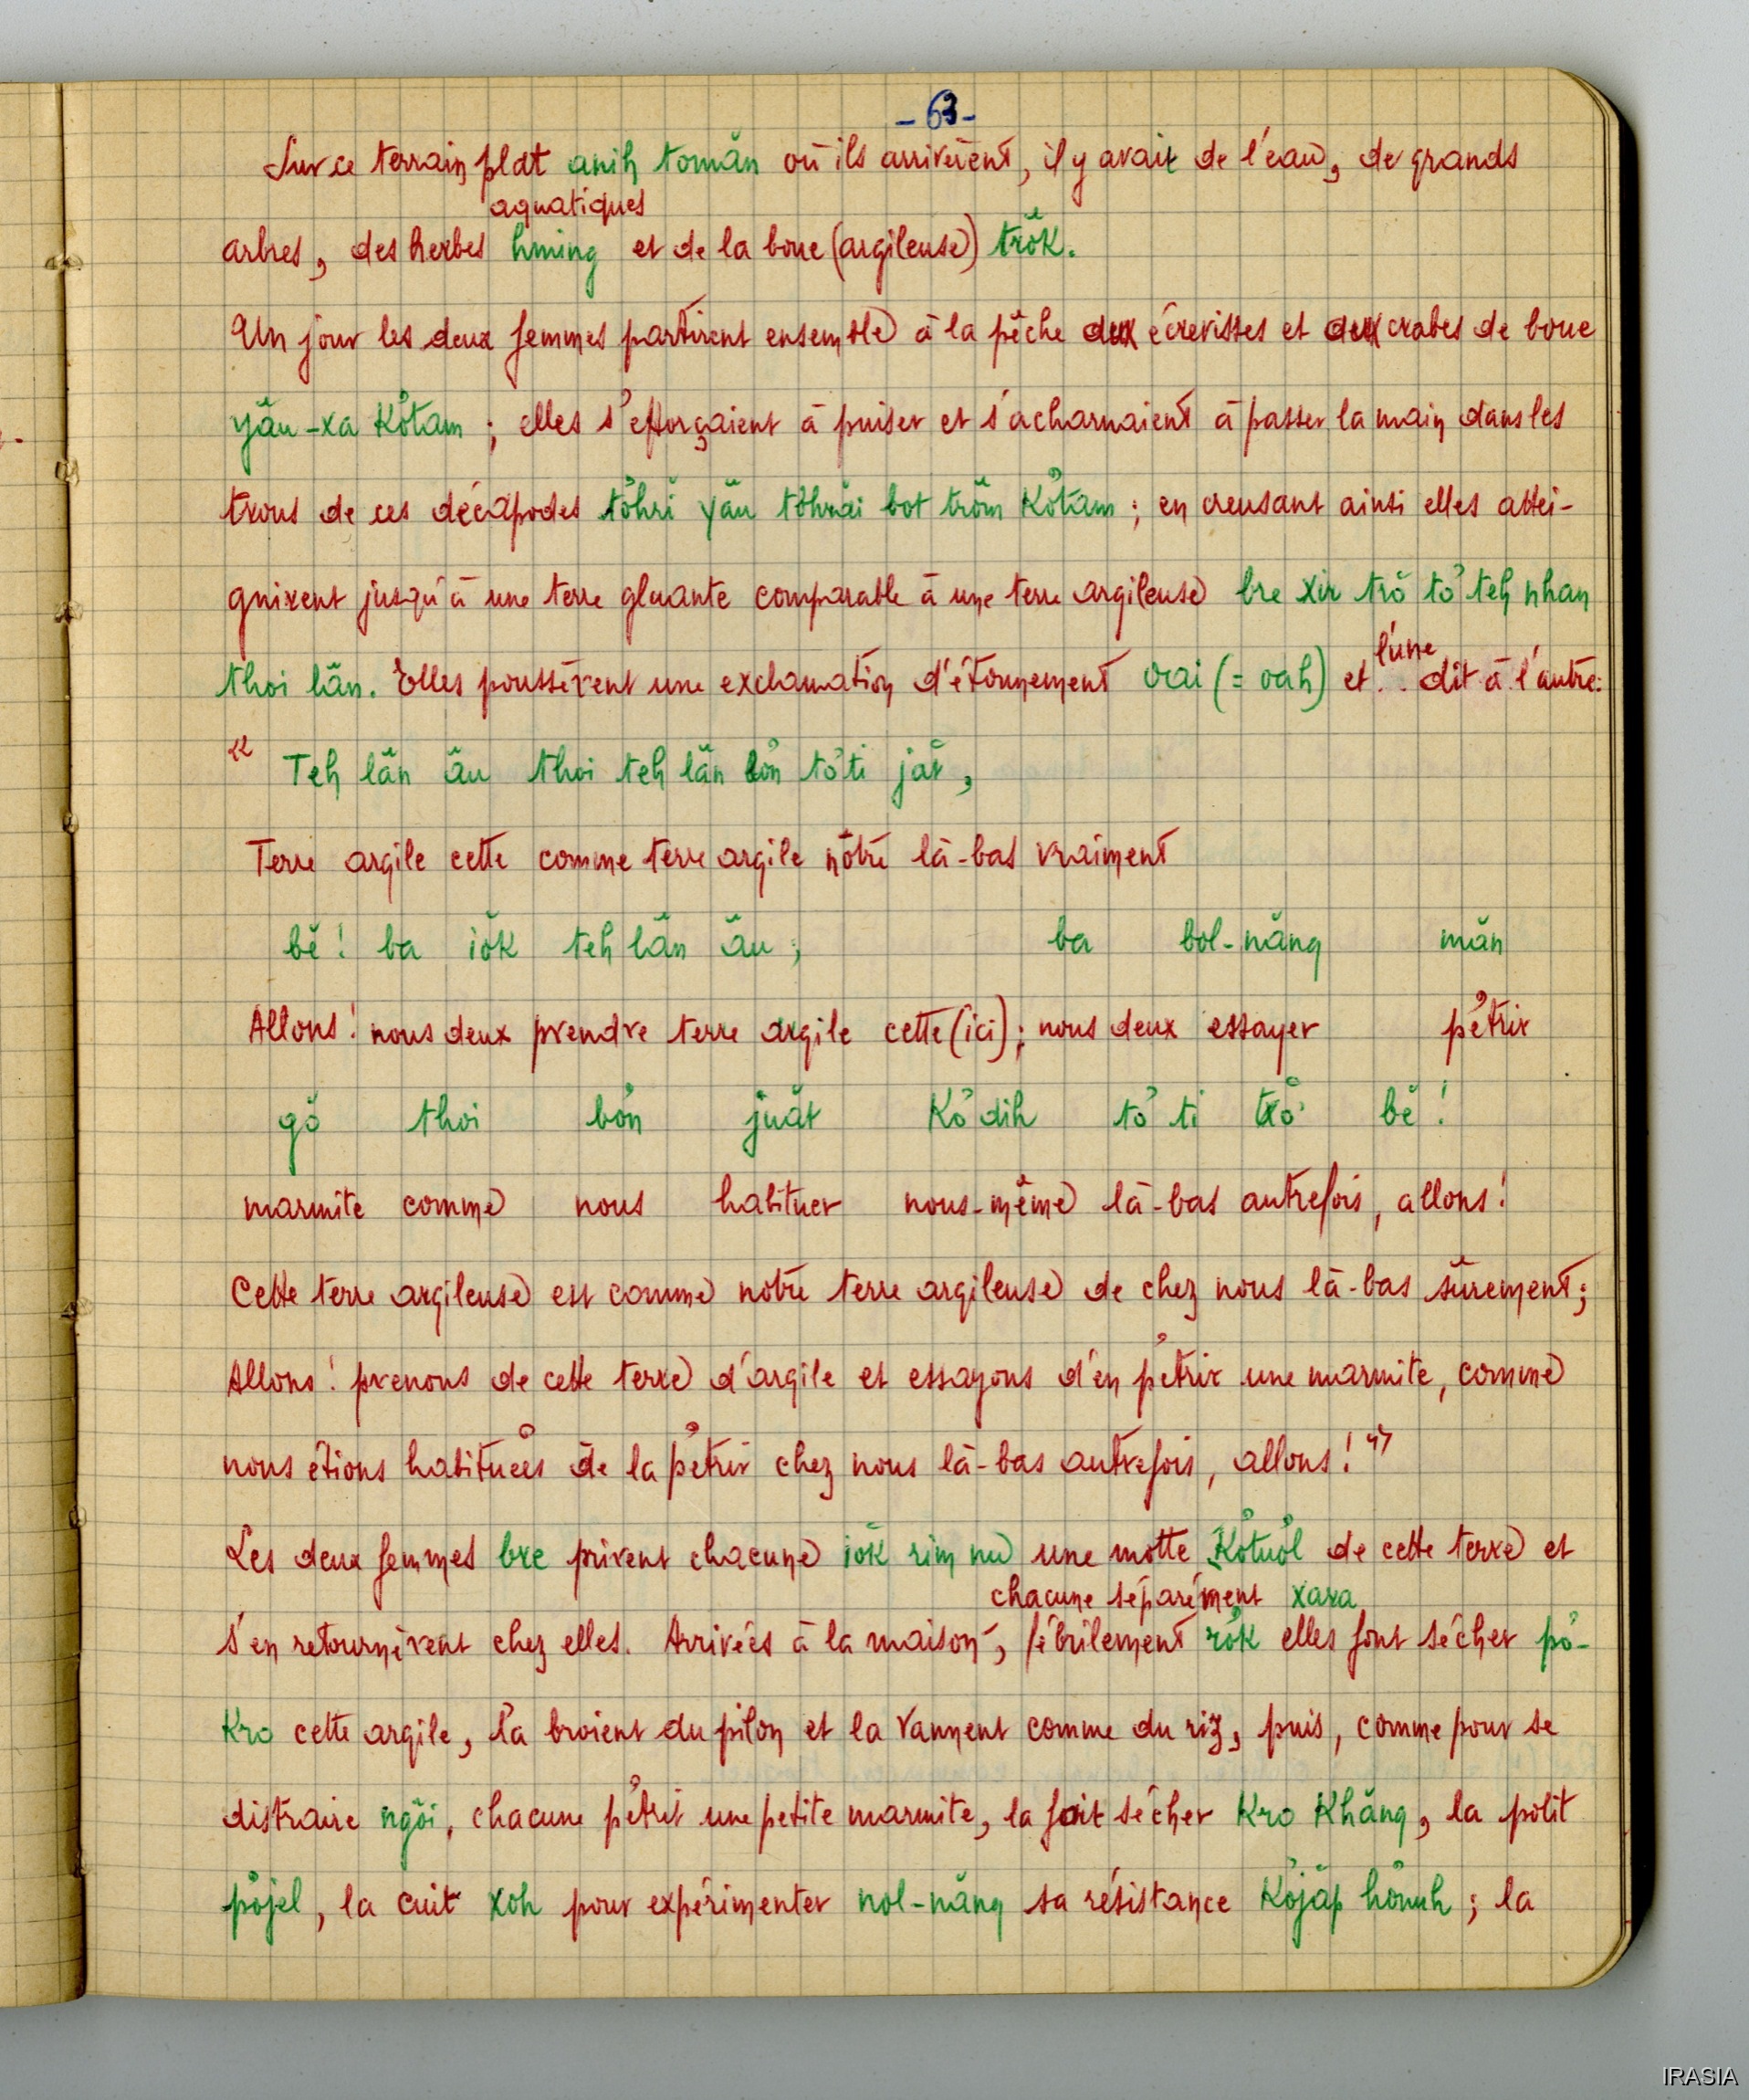 - 63 -
Sur ce terrain plat anih tomăn où ils arrivèrent, il y avait de l'eau, de grands
aquatiques
arbres, des herbes hming et de la boue (argileuse) trŏk.
Un jour les deux femmes partirent ensemble à la pêche aux écrevisses et aux crabes de boue
yău-xa Kơtam ; elles s'efforçaient à puiser et s'acharnaient à passer la main dans les
trous de ces décapodes tơhrĭ yău tơhrăi bot trŏm Kơtam ; en creusant ainsi elles attei-
gnirent jusqu'à une terre gluante comparable à une terre argileuse bre xir trŏ tơ teh nhan
l'une
thoi lăn. Elles poussèrent une exclamation d'étonnement oai (= oah) et . . dit à l'autre:
« Teh lăn ău thoi teh lăn bơn tơ ti jăt,
Terre argile cette comme terre argile nôtre là-bas vraiment
bĕ ! ba iŏk teh lăn ău ; ba bol-năng măn
Allons ! nous deux prendre terre argile cette (ici) ; nous deux essayer pétrir
gŏ thoi bơn juăt Kơ dih tơ ti bĕ !
marmite comme nous habituer nous-même là-bas autrefois, allons !
Cette terre argileuse est comme notre terre argileuse de chez nous là-bas sûrement ;
Allons ! prenons de cette terre d'argile et essayons d'en pétrir une marmite, comme
nous étions habituées de la pétrir chez nous là-bas autrefois, allons ! »
Les deux femmes bre prirent chacune iŏk rim nu une motte Kơtuơl de cette terre et
chacune séparément xara
s'en retournèrent chez elles. Arrivées à la maison, fébrilement rŏk elles font sécher pơ-
Kro cette argile, la broient du pilon et la vannent comme du riz, puis, comme pour se
distraire ngôi, chacune pétrit une petite marmite, la fait sécher Kro Khăng, la polit
pơjel, la cuit xoh pour expérimenter nol-năng sa résistance Kơjăp hơnuh ; la
IRASIA